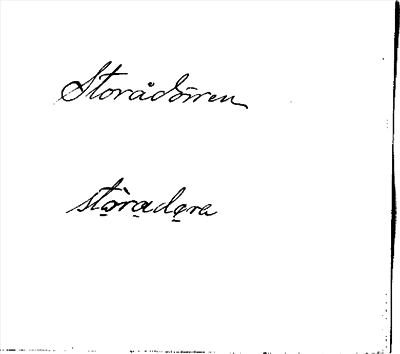 Storådörren
stò̱ra̱de̱ra